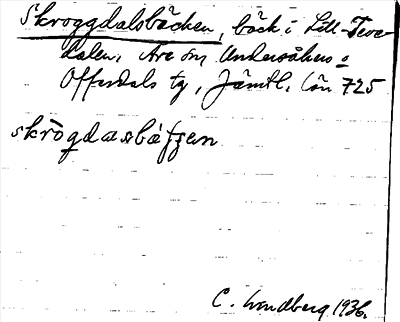 Skroggdalsbäcken, bäck i Lill-Teve-
dalen, Åre sn Undersåkers o
Offerdals tg, Jämtl. län 725
skrògdaꞎsbäƒʒen
C. Lindberg 1936.